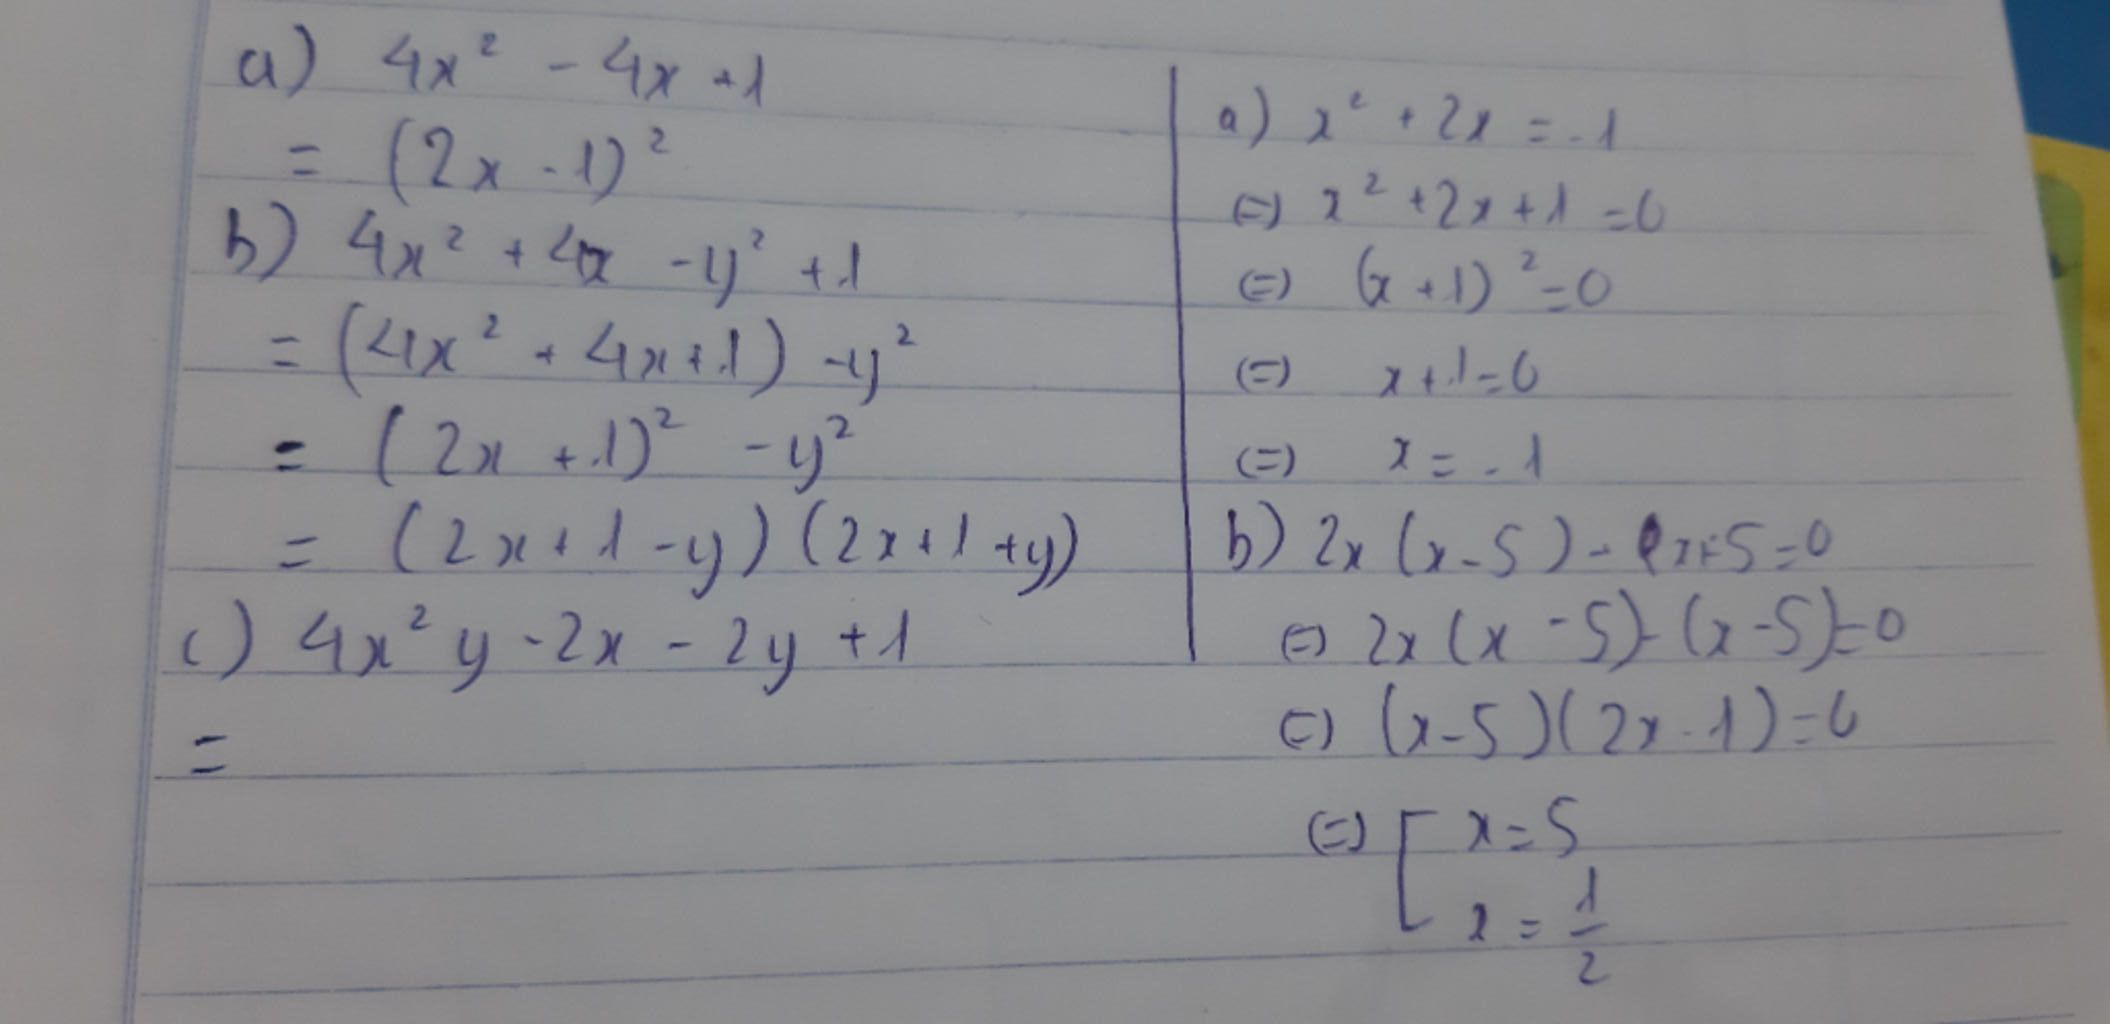 a) 4x² - 4x + 1
= (2x - 1)²
b) 4x² + 4x - y² + 1
= (4x² + 4x + 1) - y²
= (2x + 1)² - y²
= (2x + 1 - y) (2x + 1 + y)
c) 4x² y - 2x - 2y + 1
=
a) x² + 2x = -1
(=) x² + 2x + 1 = 0
(=) (x + 1)² = 0
(=) x + 1 = 0
(=) x = -1
b) 2x (x - 5) - x + 5 = 0
(=) 2x (x - 5) - (x - 5) = 0
(=) (x - 5)(2x - 1) = 0
(=) [ x = 5
x = 1/2